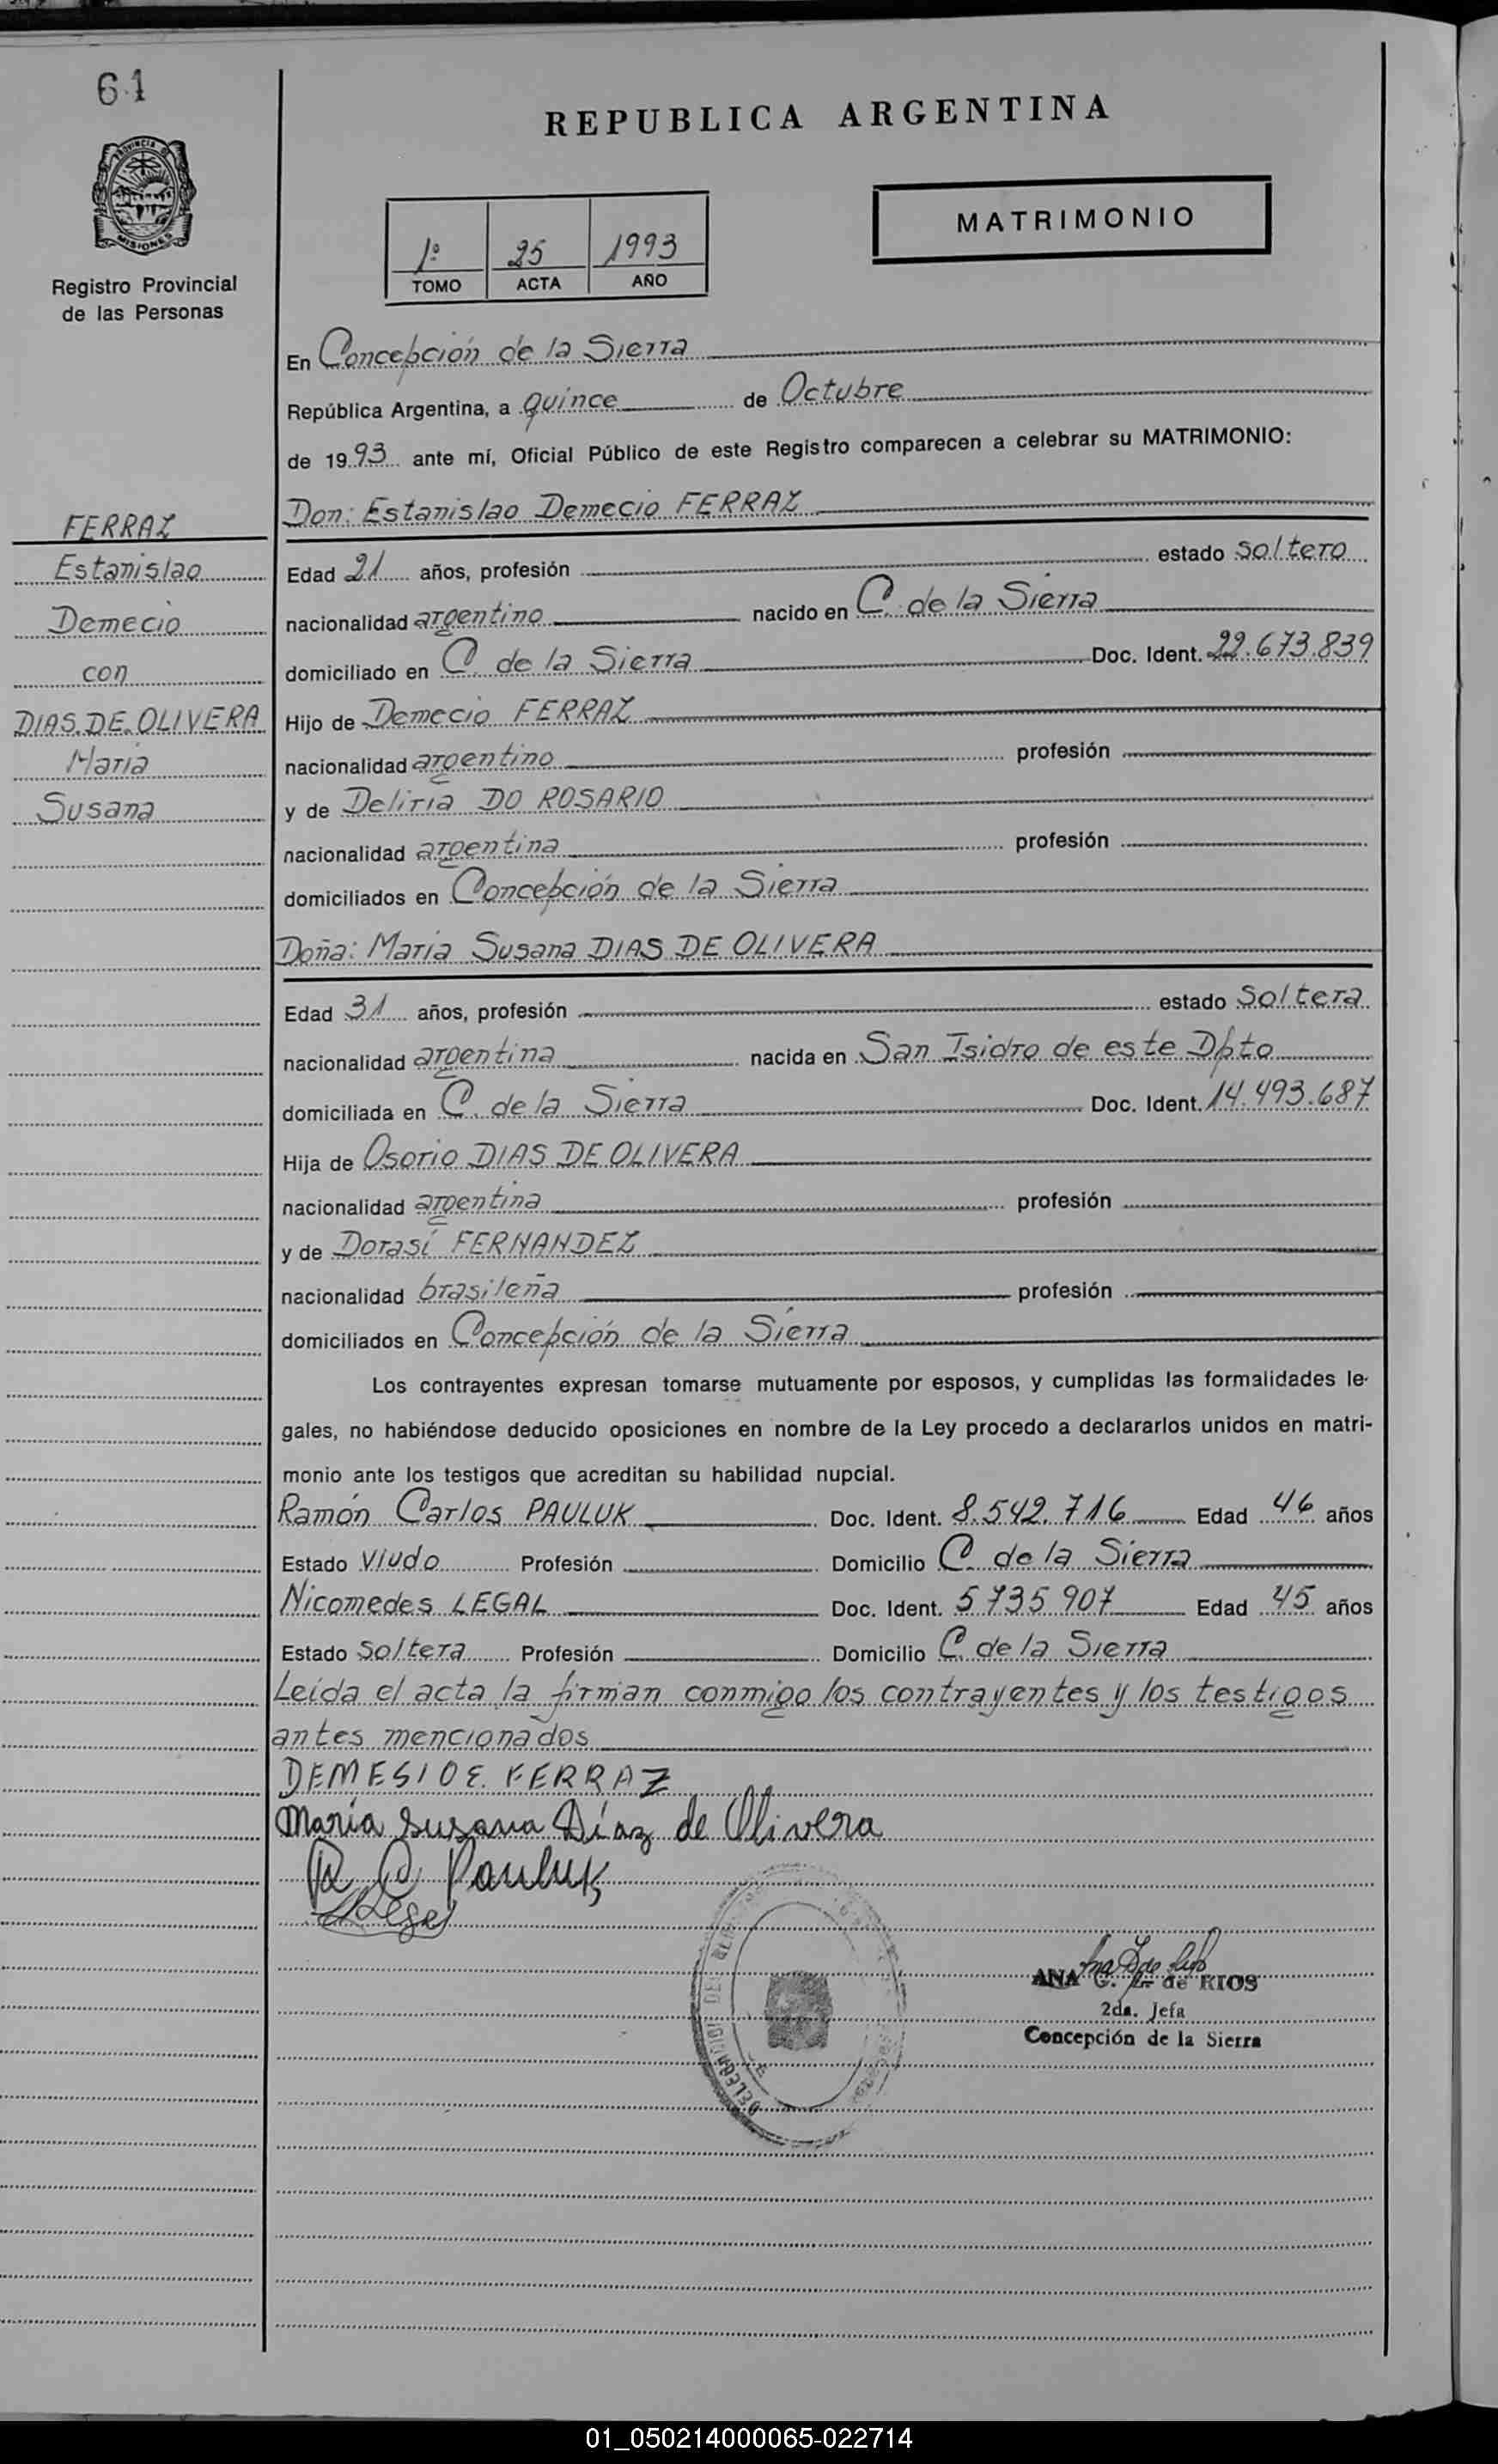 61
PROVINCIA DE
MISIONES
Registro Provincial
de las Personas
REPUBLICA ARGENTINA
MATRIMONIO
1º 25 1993
TOMO ACTA AÑO
En Concepción de la Sierra
República Argentina, a quince de Octubre
de 1993 ante mí, Oficial Público de este Registro comparecen a celebrar su MATRIMONIO:
FERRAZ
Estanislao
Demecio
con
DIAS DE OLIVERA
Maria
Susana
Don: Estanislao Demecio FERRAZ
Edad 21 años, profesión estado soltero
nacionalidad argentino nacido en C. de la Sierra
domiciliado en C. de la Sierra Doc. Ident. 22.673.839
Hijo de Demecio FERRAZ
nacionalidad argentino profesión
y de Deliria DO ROSARIO
nacionalidad argentina profesión
domiciliados en Concepción de la Sierra
Doña: Maria Susana DIAS DE OLIVERA
Edad 31 años, profesión estado soltera
nacionalidad argentina nacida en San Isidro de este Dpto
domiciliada en C. de la Sierra Doc. Ident. 14.493.687
Hija de Osorio DIAS DE OLIVERA
nacionalidad argentina profesión
y de Dorasí FERNANDEZ
nacionalidad brasileña profesión
domiciliados en Concepción de la Sierra
Los contrayentes expresan tomarse mutuamente por esposos, y cumplidas las formalidades le-
gales, no habiéndose deducido oposiciones en nombre de la Ley procedo a declararlos unidos en matri-
monio ante los testigos que acreditan su habilidad nupcial.
Ramón Carlos PAULUK Doc. Ident. 8.542.716 Edad 46 años
Estado viudo Profesión Domicilio C. de la Sierra
Nicomedes LEGAL Doc. Ident. 5 735 907 Edad 45 años
Estado soltera Profesión Domicilio C. de la Sierra
Leída el acta la firman conmigo los contrayentes y los testigos
antes mencionados
DEMESIO E. FERRAZ
Maria Susana Díaz de Olivera
R C Pauluk
DELEGACION DEL
ANA de RIOS
2da. Jefa
Concepción de la Sierra
01_050214000065-022714